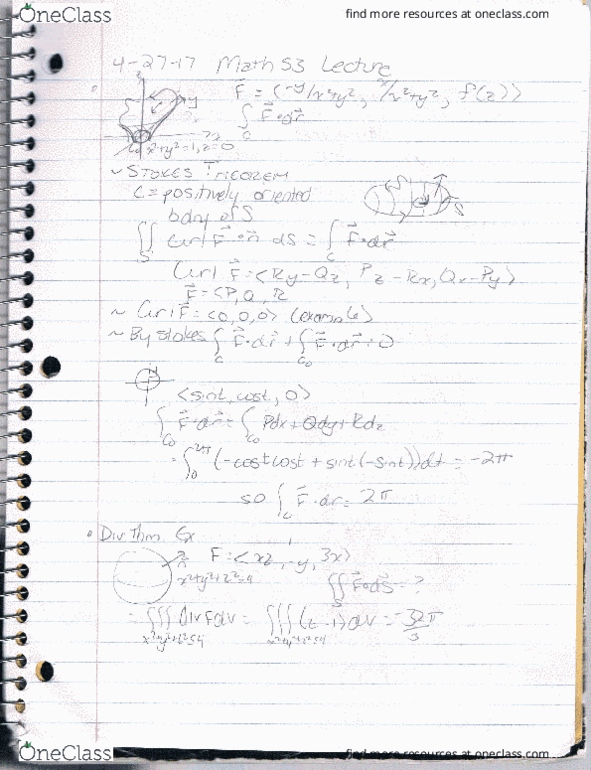 OneClass
find more resources at oneclass.com
4-27-17 Math 53 Lecture
F⃗ = ⟨-y/x²+y², x/x²+y², f(z)⟩
y
∫_C F⃗·dr⃗
x²+y²=1, z=0
~ STOKES THEOREM
C = positively oriented
bdry of S
S
∬_S Curl F⃗·n⃗ dS = ∫_C F⃗·dr⃗
Curl F⃗ = ⟨Ry-Qz, Pz-Rx, Qx-Py⟩
F⃗ = ⟨P, Q, R
~ Curl F⃗ = ⟨0,0,0⟩ (example)
~ By Stokes ∫_C F⃗·dr⃗ + ∫_C₀ F⃗·dr⃗ = 0
⟨sint, cost, 0⟩
∫_C₀ F⃗·dr⃗ = ∫_C₀ Pdx + Qdy + Rdz
= ∫_0^2π (-cost cost + sint(-sint))dt = -2π
so ∫_C F⃗·dr = 2π
• Div Thm. Ex
F = ⟨xz, -y, 3x⟩
x²+y²+z²=4
∬_S F⃗·dS⃗ = ?
= ∭_x²+y²+z²≤4 Div F dV = ∭_x²+y²+z²≤4 (z-1)dV = -32π/3
OneClass
find more resources at oneclass.com